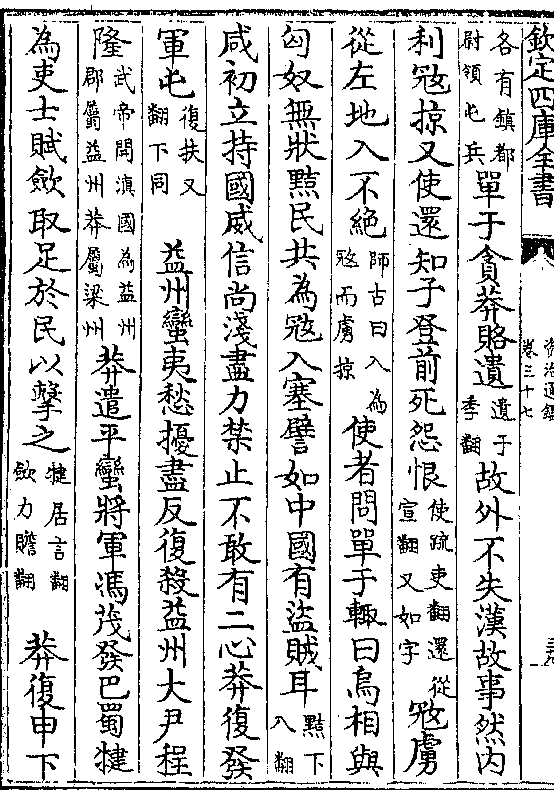 欽定四庫全書
資治通鑑
卷三十七
各有鎮都
尉領屯兵
單于貪莽賂遺
遺于
季翻
故外不失漢故事然内
利㓂掠又使還知子登前死怨恨
使疏吏翻還從
宣翻又如字
㓂虜
從左地入不絶
師古曰入為
㓂而虜掠
使者問單于輙曰烏桓與
匈奴無狀黠民共為㓂入塞譬如中國有盜賊耳
黠下
八翻
咸初立持國威信尚淺盡力禁止不敢有二心莽復發
軍屯
復扶又
翻下同
益州蠻夷愁擾盡反復殺益州大尹程
隆
武帝開滇國為益州
郡屬益州莽屬梁州
莽遣平蠻將軍馮茂發巴蜀犍
為吏士賦歛取足於民以擊之
犍居言翻
歛力贍翻
莽復申下